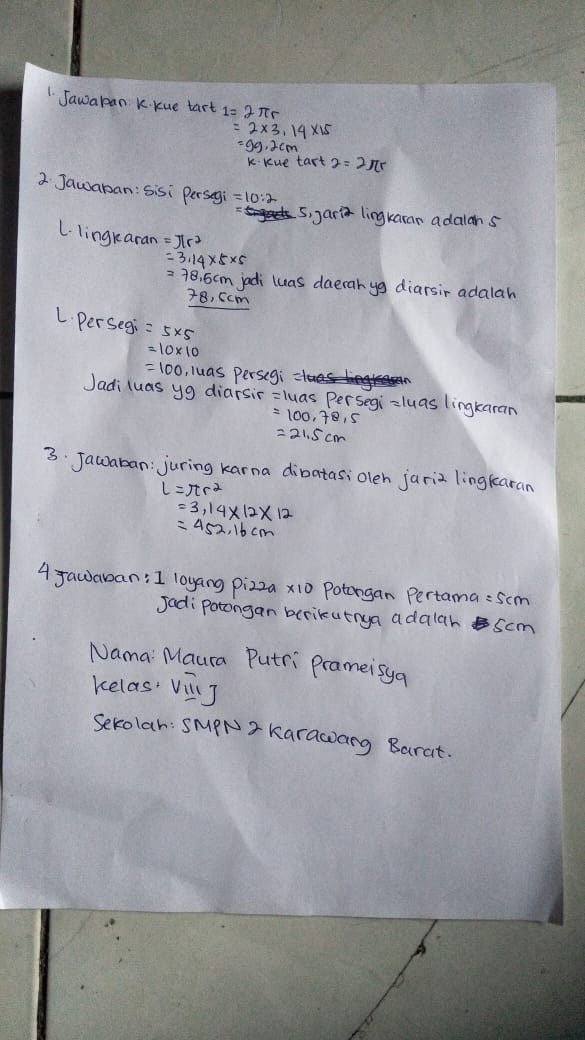 1. Jawaban: K. Kue tart 1 = 2 πr
= 2 x 3,14 x 15
= 99,2cm
K. Kue tart 2 = 2πr
2. Jawaban: Sisi Persegi = 10:2
= 5, jari2 lingkaran adalah 5
L. lingkaran = πr2
= 3,14 x 5 x 5
= 78,5cm jadi luas daerah yg diarsir adalah
78,5cm
L. Persegi = 5x5
= 10x10
= 100, luas persegi = luas lingkaran
Jadi luas yg diarsir = luas Persegi = luas lingkaran
= 100, 78,5
= 21,5 cm
3. Jawaban: juring karna dibatasi oleh jari2 lingkaran
L = πr2
= 3,14 x 12 x 12
= 452,16 cm
4 Jawaban: 1 loyang pizza x10 Potongan Pertama = 5cm
Jadi potongan berikutnya adalah 5cm
Nama: Maura Putri Prameisya
Kelas: VIII J
Sekolah: SMPN 2 Karawang Barat.